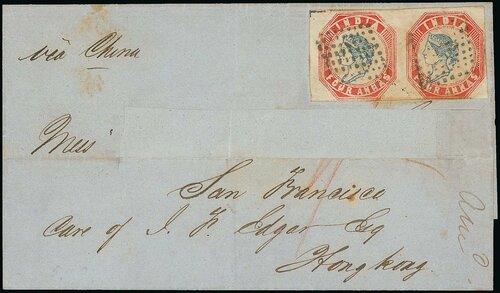 INDIA INDIA
FOUR ANNAS FOUR ANNAS
via China
Mess
San Francisco
Care of J. F. Edgar Esq
Hongkong